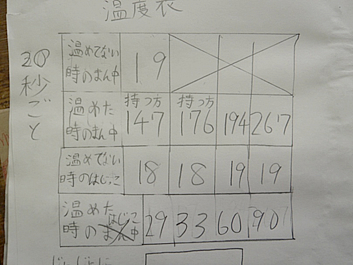 温度表
20秒ごと
温めてない
時のまん中
19
温めた
時のまん中
持つ方
147
持つ方
176
194
267
温めてない
時のはじっこ
18
18
19
19
温めた
時のはじっこ
29
33
60
90